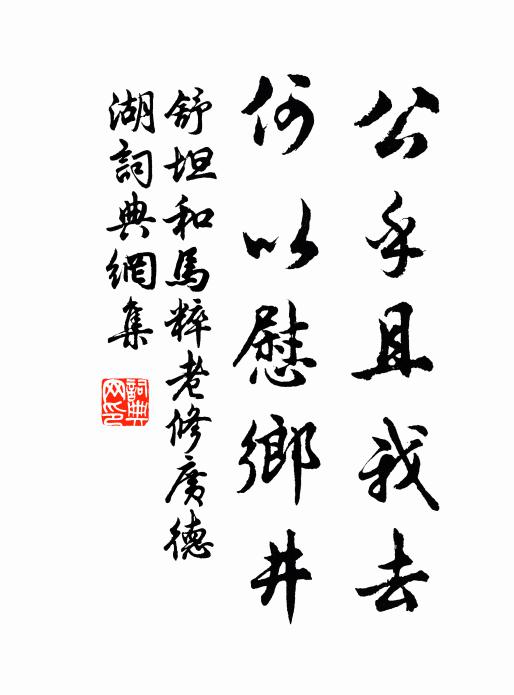 公乎且我去
何以慰鄉井
舒坦和馬粹老修廣德
湖詞典網集
詞典網印